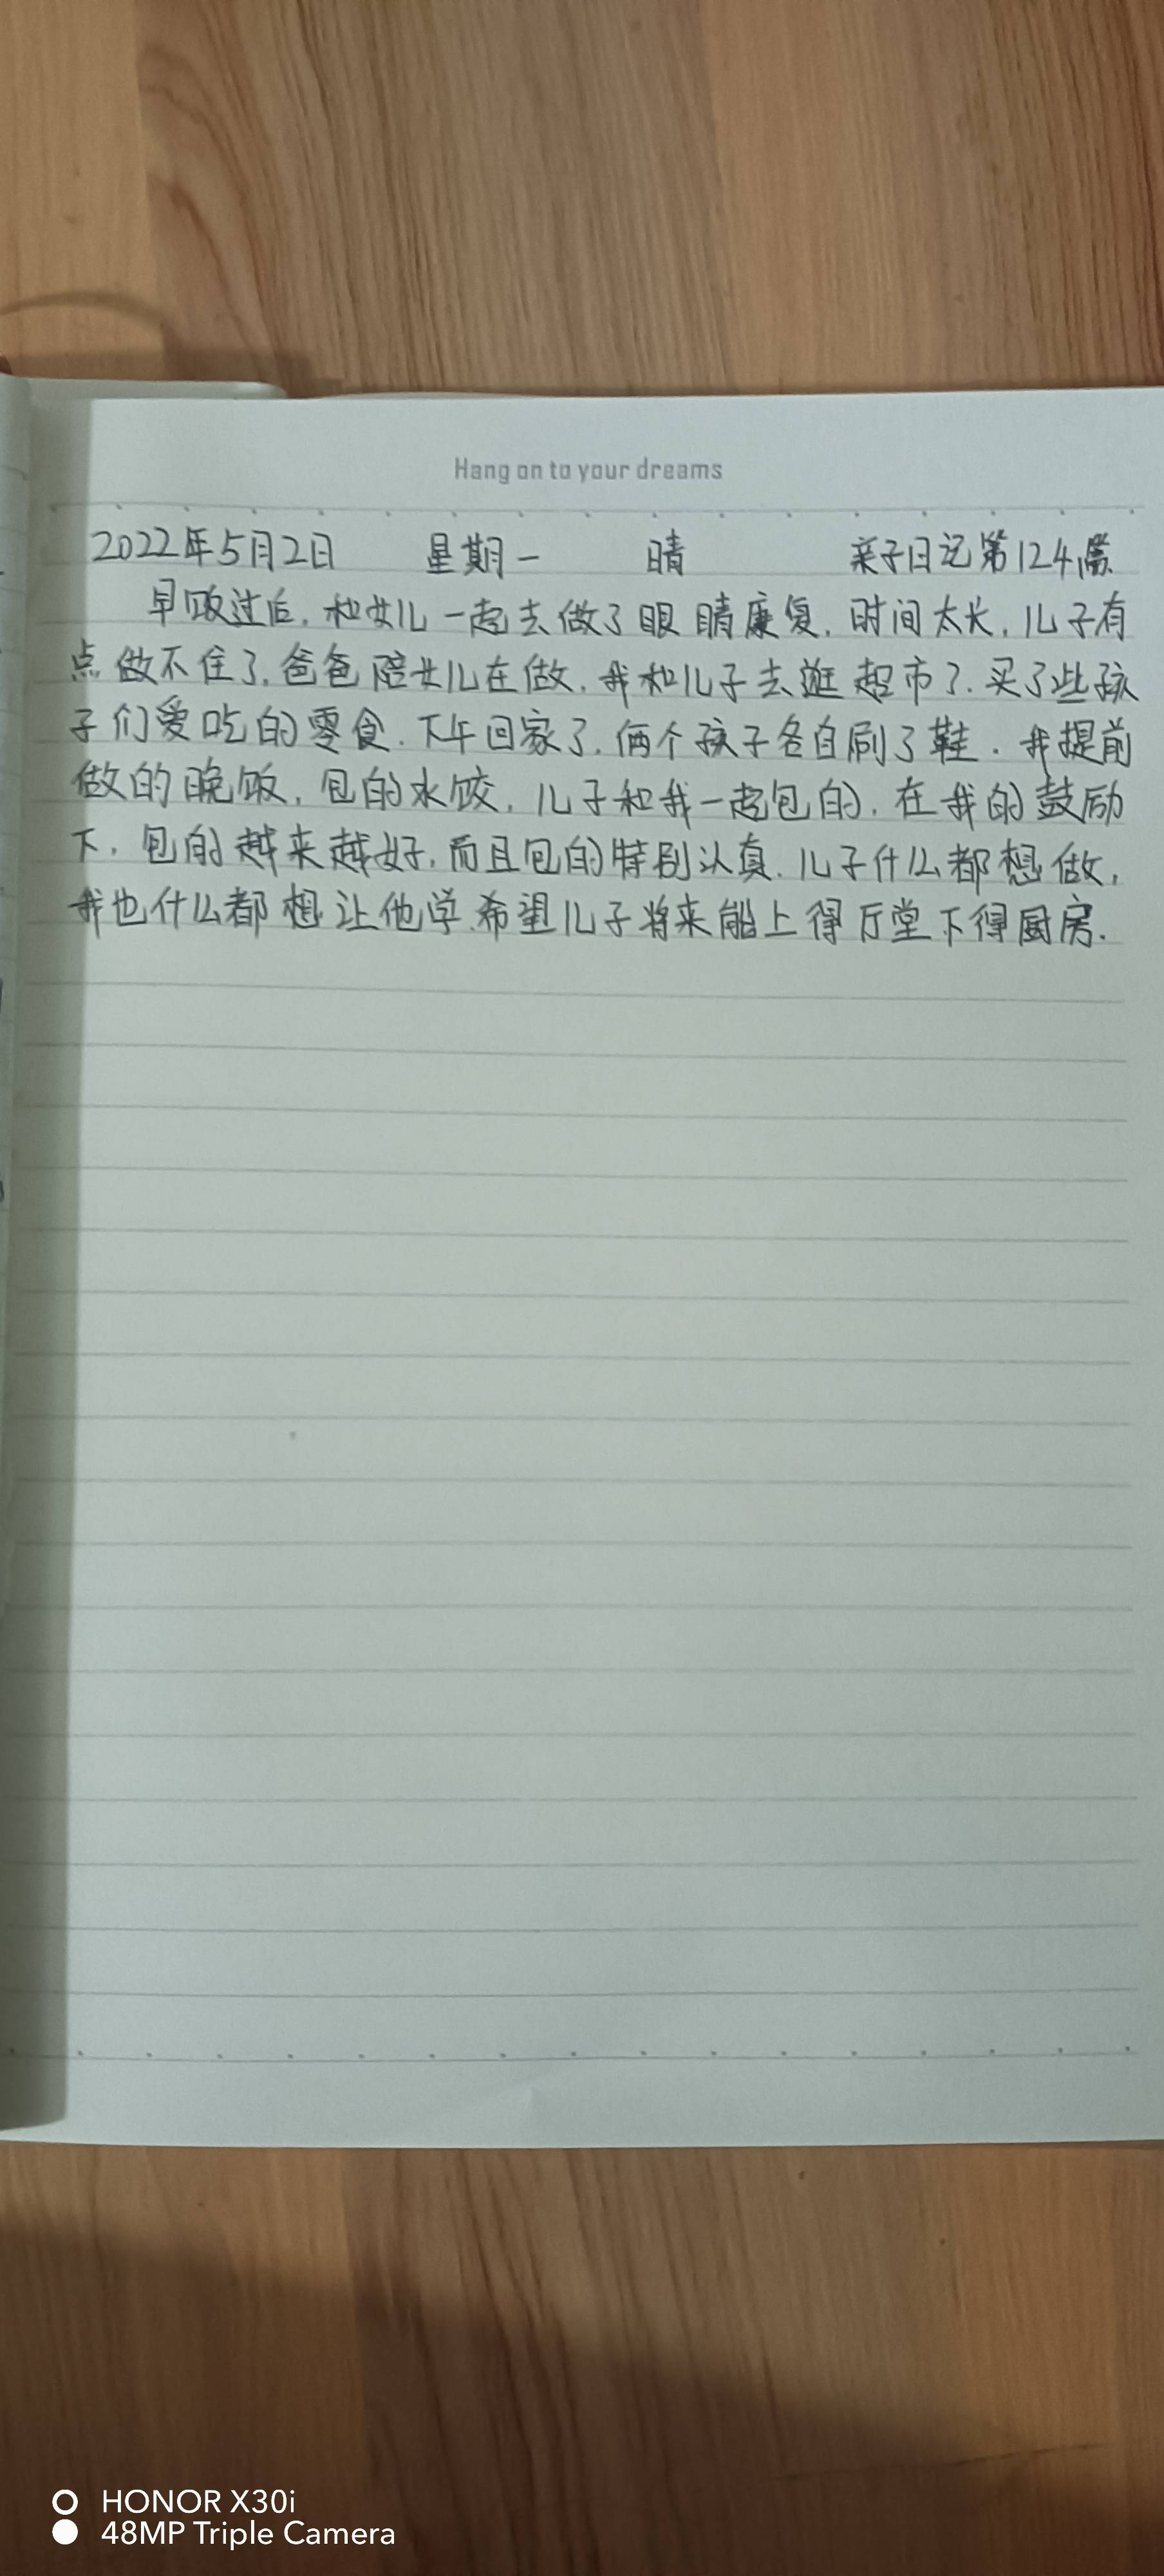 Hang on to your dreams
2022年5月2日 星期一 晴 亲子日记第124篇
早饭过后,和女儿一起去做了眼睛康复,时间太长,儿子有
点做不住了,爸爸陪女儿在做,我和儿子去逛超市了.买了些孩
子们爱吃的零食.下午回家了.俩个孩子各自刷了鞋.我提前
做的晚饭,包的水饺,儿子和我一起包的,在我的鼓励
下,包的越来越好,而且包的特别认真.儿子什么都想做,
我也什么都想让他学.希望儿子将来能上得厅堂下得厨房.
HONOR X30i
48MP Triple Camera